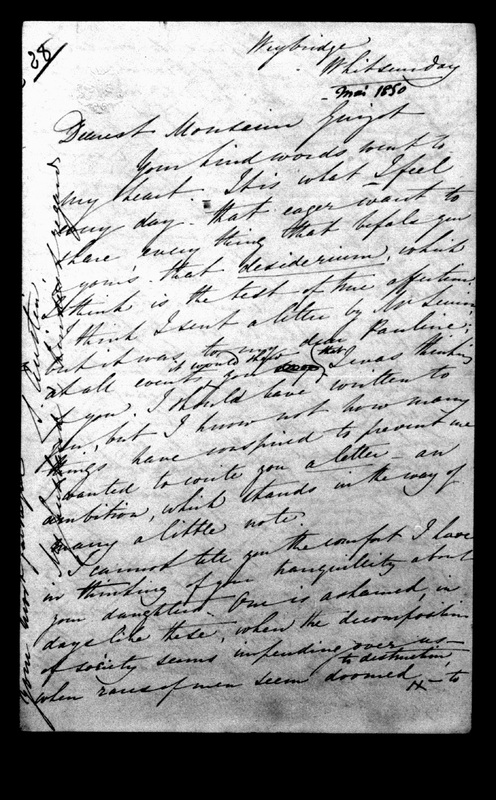 28
Weybridge
Whitsunday
- Mai 1850
Dearest Monsieur Guizot
Your kind words went to
my heart. It is what I feel
every day - that eager want to
share every thing that befals you
& yours - that desiderium, which
I think is the test of true affection.
I think I sent a letter by Mr Senior
but it was to my dear Pauline;
at all events, it would show you (that) I was thinking
of you. I should have written to
you, but I know not how many
things have conspired to prevent me
I wanted to write you a letter - an
ambition, which stands in the way of
many a little note.
I cannot tell you the comfort I have
in thinking of your tranquillity about
your daughters. One is ashamed, in
days like these, when the decomposition
of society seems impending over us -
when races of men seem doomed to destruction - to
Austin